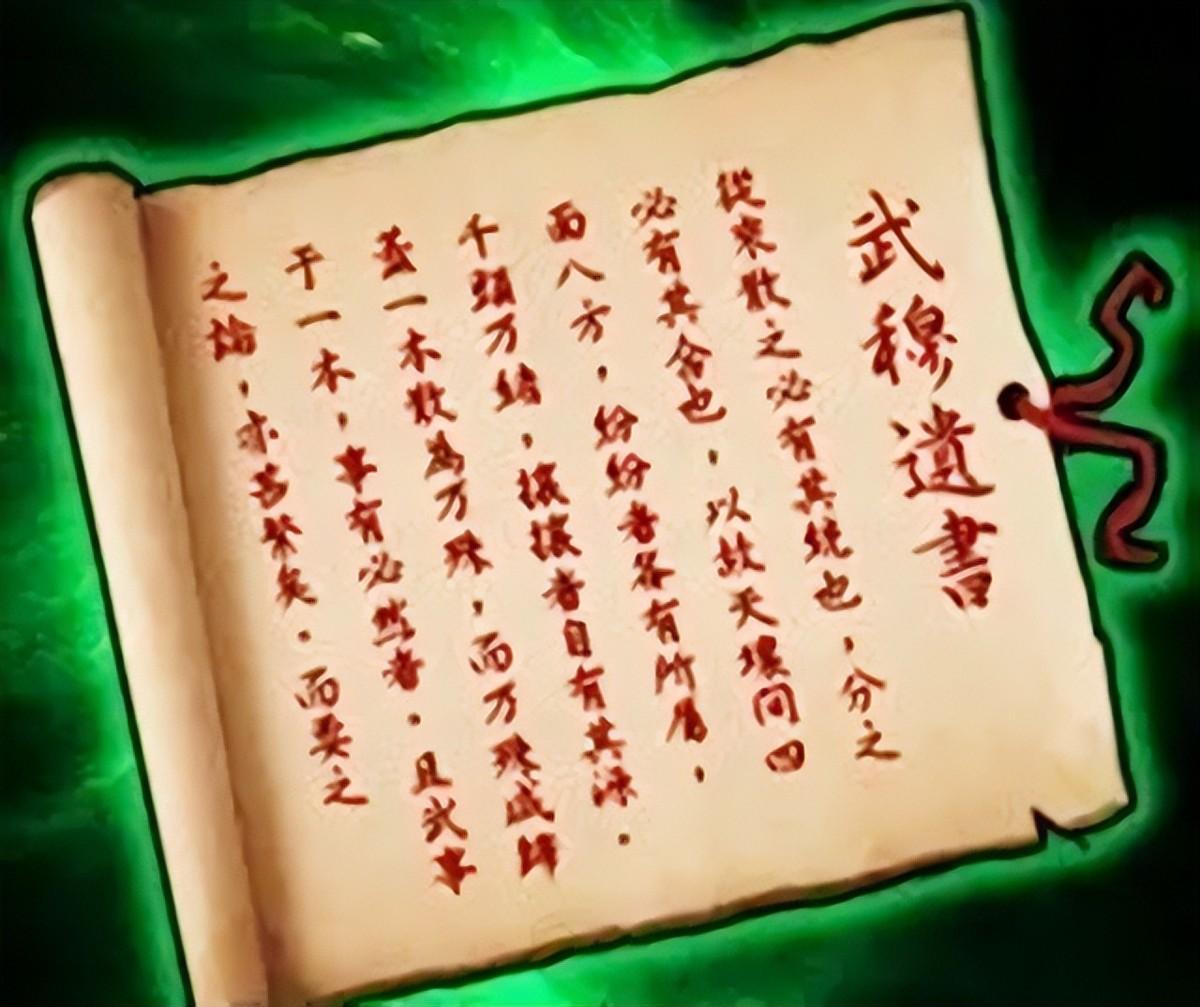 武穆遺書
從來散之必有其統也，分之
必有其合也，以故天壤间四
面八方，紛紛者各有所属，
千頭万緒，攘攘者自有其源。
盖一本散為万殊，而万殊咸歸
于一本，事有必然者。且武事
之論，亦甚繁矣。而要之